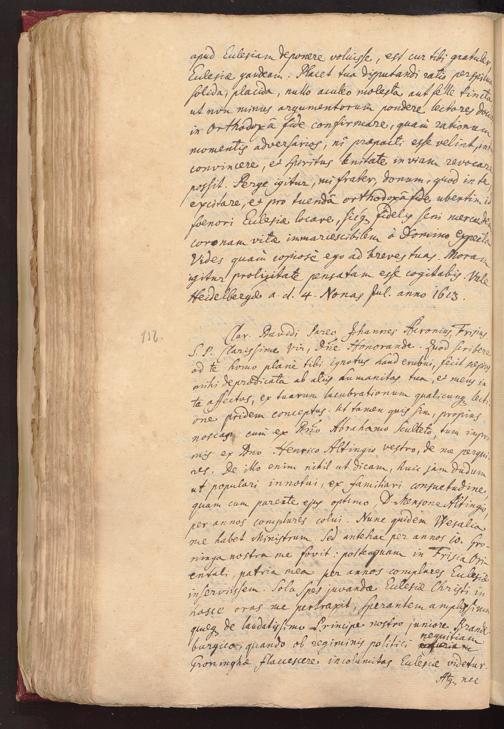 apud Ecclesiam deponere voluisse, est cur tibi gratuler,
Ecclesiæ gaudeam: Placet tua disputandi ratio perspicua
solida, placida, nullo aculeo molesta aut felle tincta
ut non minus argumentorum pondere lectores
in Orthodoxâ fide confirmare, quam rationum
momentis adversarios, ni præfracti esse velint,
convincere, et spiritus lenitate in viam revocare
possit. Perge igitur, mi frater, donum, quod in te
excitare, et pro tuenda orthodoxâ fide ubertim
foenori Ecclesiæ locare, sicq. fidelis servi mercedem
coronam vitæ immarcescibilem à Domino expecta
Vides quam copiosè ego ad breves tuas. Moram
igitur prolixitate pensatam esse cogitabis. Vale
Heidelbergæ a. d. 4. Nonas Jul. anno 1613.
Clar. Davidi Pareo Johannes Acronius Frisius
S. P. Clarissime vir, Dne Honorande. Quod scribere
ad te homo planè tibi ignotus haud erubui, fecit
mihi deprædicata ab aliis humanitas tua, et meus in
te affectus, ex tuarum lucubrationum qualicunq. lecti-
one pridem conceptus. Ut tamen quis sim, propius
noscas, cum ex Dno Abrahamo Sculteto, tum inpri-
mis ex Dno Henrico Altingio vestro, de me perqui
res. De illo enim nihil ut dicam, huic jam dudum
ut populari innotui, ex familiari consuetudine,
quam cum parente ejus optimo D. Mensone Altingio,
per annos complures colui. Nunc quidem Vesalia
me habet Ministrum. Sed antehac per annos Gro-
ninga nostra me fovit: posteaquam in Frisia Ori-
entali, patria mea per annos complures Ecclesiæ
inserviissem. Sola spes juvandæ Ecclesiæ Christi in
hasce oras me pertraxit, sperantem amplissimum
de laudatissimo Principe nostro juniore Brand-
burgico, quando ob regiminis politici nequitiam
Groningæ flaccescere incolumitas Ecclesiæ videtur.
Atq. nec